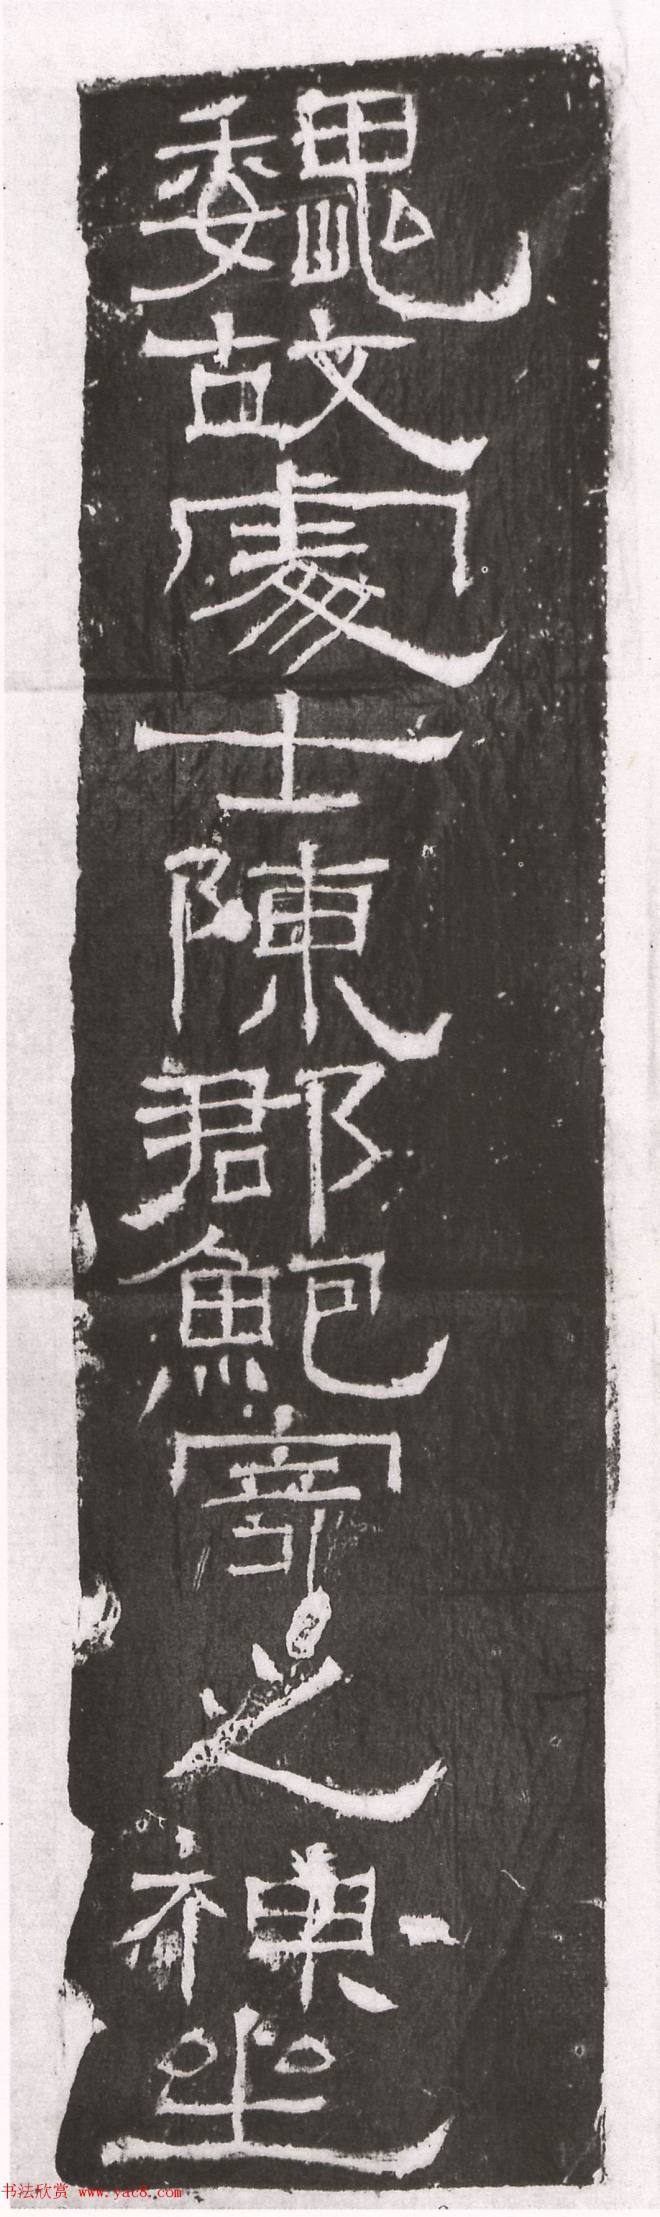 魏故處士陳郡鮑寄之神坐
书法欣赏 www.yac8.com